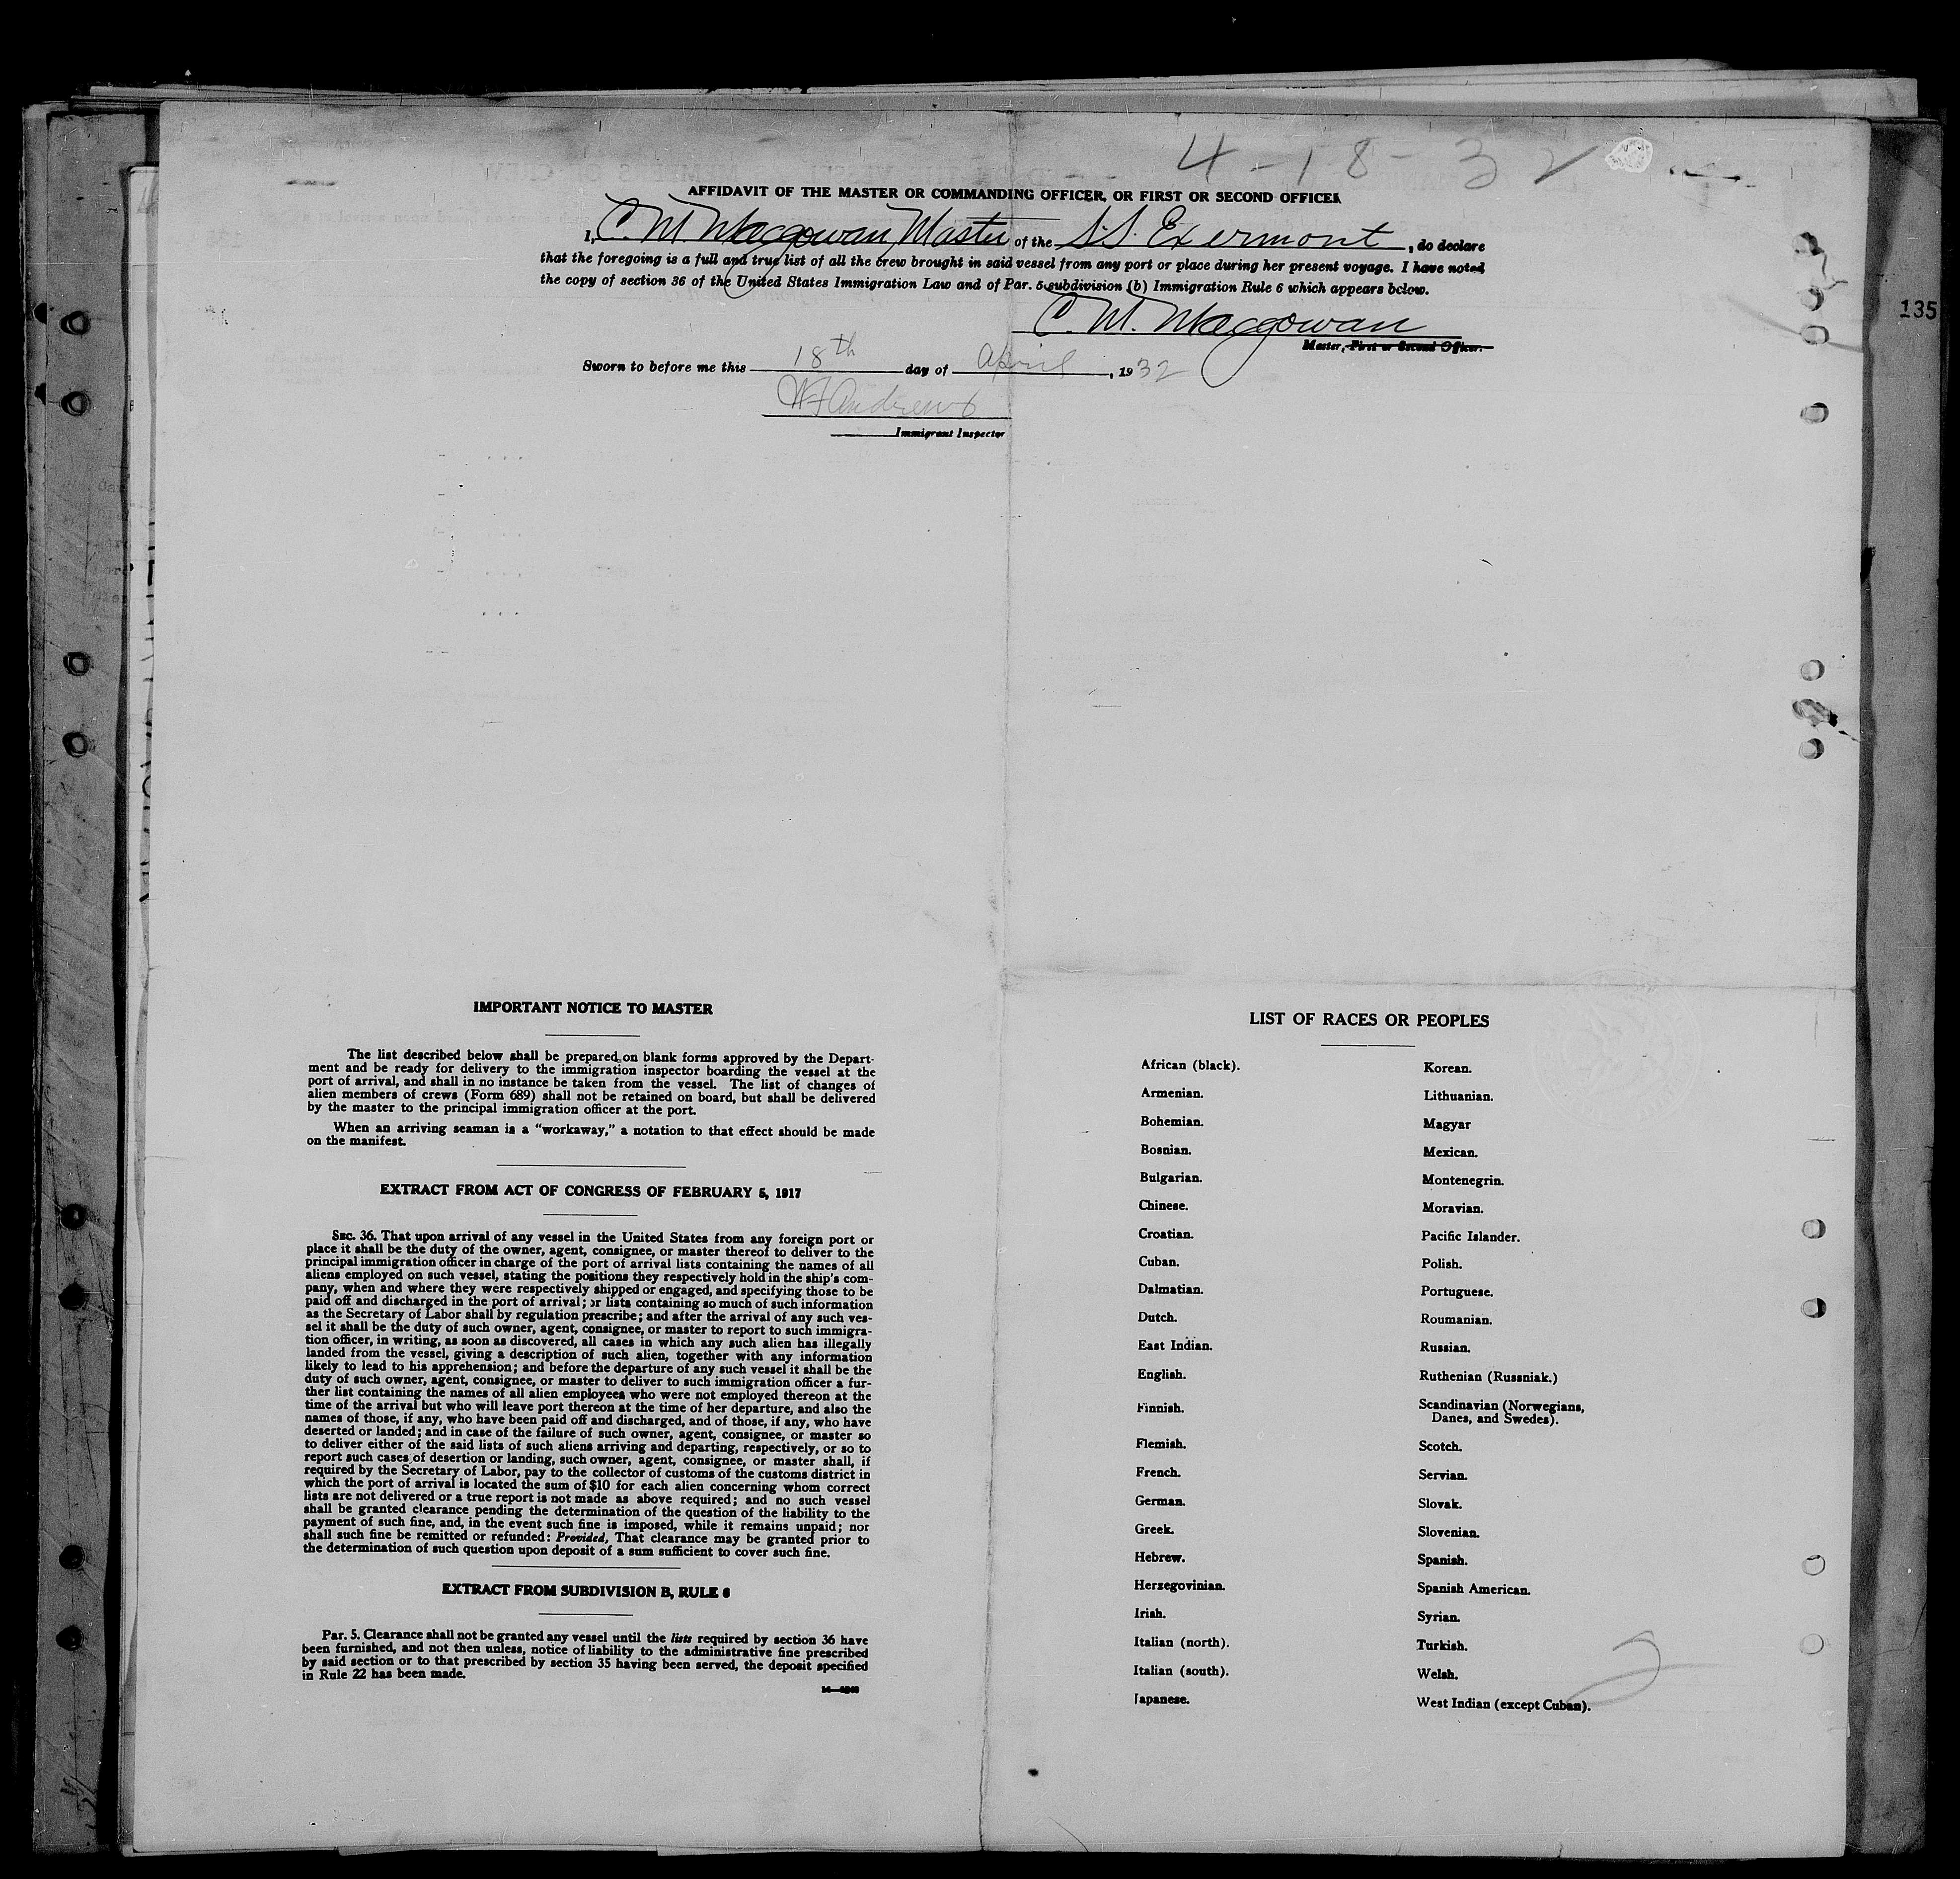 4-18-32
AFFIDAVIT OF THE MASTER OR COMMANDING OFFICER, OR FIRST OR SECOND OFFICER
I, C. M. Macgowan, Master of the S.S. Exermont, do declare
that the foregoing is a full and true list of all the crew brought in said vessel from any port or place during her present voyage. I have noted
the copy of section 36 of the United States Immigration Law and of Par. 5 subdivision (b) Immigration Rule 6 which appears below.
C. M. Macgowan
135
Master, First or Second Officer.
Sworn to before me this 18th day of April, 1932
Andrews
Immigrant Inspector
IMPORTANT NOTICE TO MASTER
The list described below shall be prepared on blank forms approved by the Depart-
ment and be ready for delivery to the immigration inspector boarding the vessel at the
port of arrival, and shall in no instance be taken from the vessel. The list of changes of
alien members of crews (Form 689) shall not be retained on board, but shall be delivered
by the master to the principal immigration officer at the port.
When an arriving seaman is a “workaway,” a notation to that effect should be made
on the manifest.
EXTRACT FROM ACT OF CONGRESS OF FEBRUARY 5, 1917
SEC. 36. That upon arrival of any vessel in the United States from any foreign port or
place it shall be the duty of the owner, agent, consignee, or master thereof to deliver to the
principal immigration officer in charge of the port of arrival lists containing the names of all
aliens employed on such vessel, stating the positions they respectively hold in the ship's com-
pany, when and where they were respectively shipped or engaged, and specifying those to be
paid off and discharged in the port of arrival; or lists containing so much of such information
as the Secretary of Labor shall by regulation prescribe; and after the arrival of any such ves-
sel it shall be the duty of such owner, agent, consignee, or master to report to such immigra-
tion officer, in writing, as soon as discovered, all cases in which any such alien has illegally
landed from the vessel, giving a description of such alien, together with any information
likely to lead to his apprehension; and before the departure of any such vessel it shall be the
duty of such owner, agent, consignee, or master to deliver to such immigration officer a fur-
ther list containing the names of all alien employees who were not employed thereon at the
time of the arrival but who will leave port thereon at the time of her departure, and also the
names of those, if any, who have been paid off and discharged, and of those, if any, who have
deserted or landed; and in case of the failure of such owner, agent, consignee, or master so
to deliver either of the said lists of such aliens arriving and departing, respectively, or so to
report such cases of desertion or landing, such owner, agent, consignee, or master shall, if
required by the Secretary of Labor, pay to the collector of customs of the customs district in
which the port of arrival is located the sum of $10 for each alien concerning whom correct
lists are not delivered or a true report is not made as above required; and no such vessel
shall be granted clearance pending the determination of the question of the liability to the
payment of such fine, and, in the event such fine is imposed, while it remains unpaid; nor
shall such fine be remitted or refunded: Provided, That clearance may be granted prior to
the determination of such question upon deposit of a sum sufficient to cover such fine.
EXTRACT FROM SUBDIVISION B, RULE 6
Par. 5. Clearance shall not be granted any vessel until the lists required by section 36 have
been furnished, and not then unless, notice of liability to the administrative fine prescribed
by said section or to that prescribed by section 35 having been served, the deposit specified
in Rule 22 has been made.
LIST OF RACES OR PEOPLES
African (black).
Armenian.
Bohemian.
Bosnian.
Bulgarian.
Chinese.
Croatian.
Cuban.
Dalmatian.
Dutch.
East Indian.
English.
Finnish.
Flemish.
French.
German.
Greek.
Hebrew.
Herzegovinian.
Irish.
Italian (north).
Italian (south).
Japanese.
Korean.
Lithuanian.
Magyar
Mexican.
Montenegrin.
Moravian.
Pacific Islander.
Polish.
Portuguese.
Roumanian.
Russian.
Ruthenian (Russniak.)
Scandinavian (Norwegians,
Danes, and Swedes).
Scotch.
Servian.
Slovak.
Slovenian.
Spanish.
Spanish American.
Syrian.
Turkish.
Welsh.
West Indian (except Cuban).